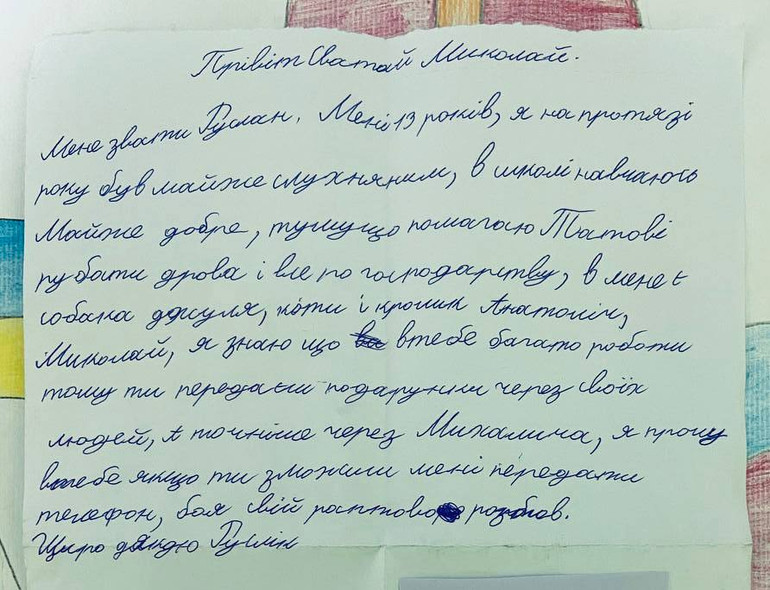 Прівіт Сватай Миколай.
Мене звати Руслан. Мені 13 років, я на протязі
року був майже слухняним, в школі навчаюсь
Майже добре, тумущо помагаю Татові
рубати дрова і все по господарству, в мене є
собака джуля, коти і кролик Анатоліч,
Миколай, я знаю що втебе багато роботи
тому ти передаєш подарунки через своїх
людей, А точніше через Михалича, я прошу
втебе якщо ти зможиш мені передати
телефон, боя свій раптово розбив.
Щиро дякую Руслік